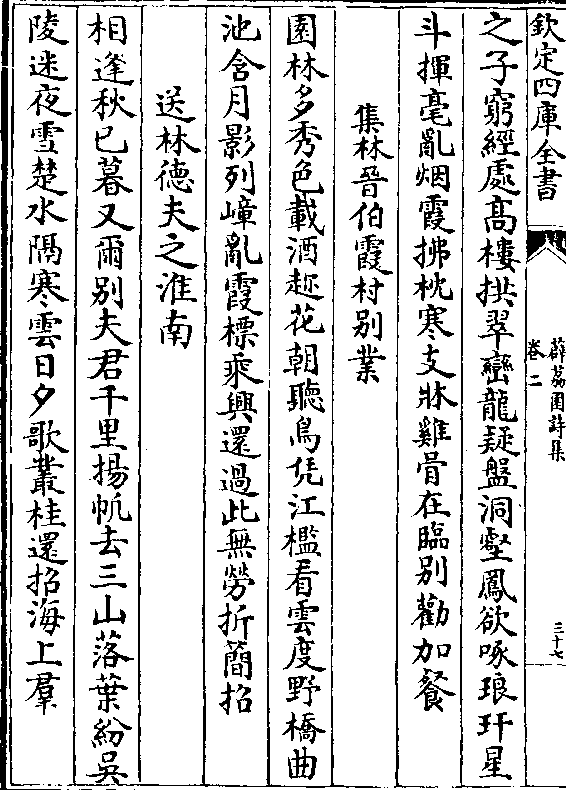 欽定四庫全書
薜荔園詩集
卷二
三十七
之子窮經處髙樓拱翠巒龍疑盤洞壑鳳欲啄琅玕星
斗揮毫亂烟霞拂枕寒支牀雞骨在臨别勸加餐
集林晉伯霞村别業
園林多秀色載酒趂花朝聽鳥凭江檻看雲度野橋曲
池含月影列嶂亂霞標乘興還過此無勞折簡招
送林德夫之淮南
相逢秋已暮又爾别夫君千里揚帆去三山落葉紛吳
陵迷夜雪楚水隔寒雲日夕歌叢桂還招海上羣